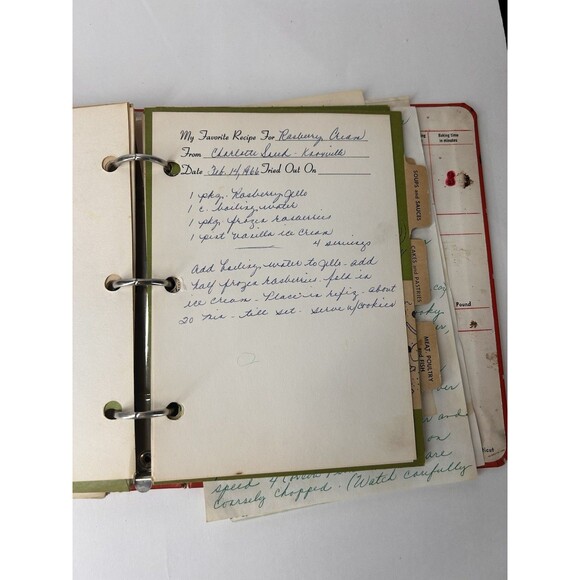 My Favorite Recipe For Rasberry Cream
From Charlotte - Knoxville
Date Feb. 14, 1966 Tried Out On
1 pkg. Rasberry Jello
1 c. boiling water
1 pkg frozen rasberries
1 pint vanilla ice cream
4 servings
add boiling water to Jello - add
half frozen rasberries - fold in
ice cream - Place in refrig. about
20 min - till set - serve w/cookies
SOUPS and SAUCES
CAKES and PASTRIES
MEAT, POULTRY
and FISH
Baking time
in minutes
Pound
and
on
are
speed
coarsely chopped. (Watch carefully